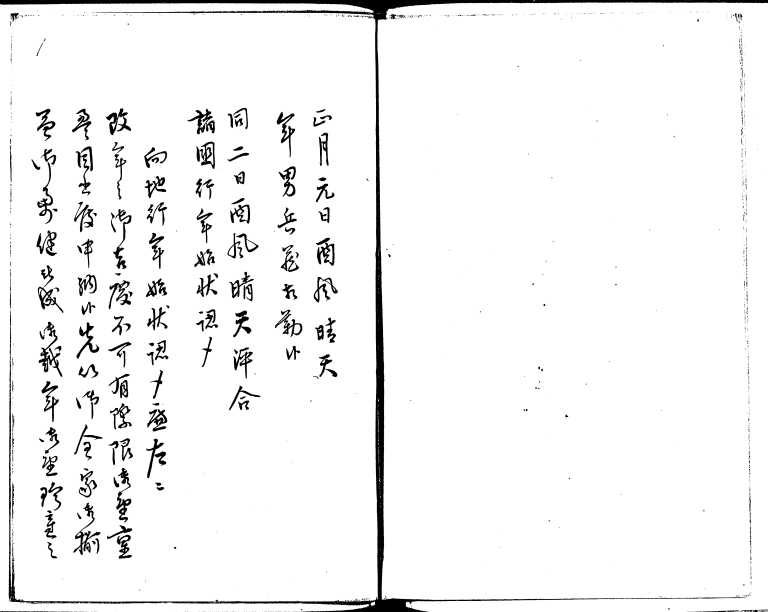 正月元日酉風晴天
年男兵蔵相勤候
同二日酉風晴天評合
諸国行年始状認メ
向地行年始状認メ左ニ
改年之御吉慶不可有際限御座重
畳目出度申納候先以御全家御揃
益御勇健被成御越年御座珍重之